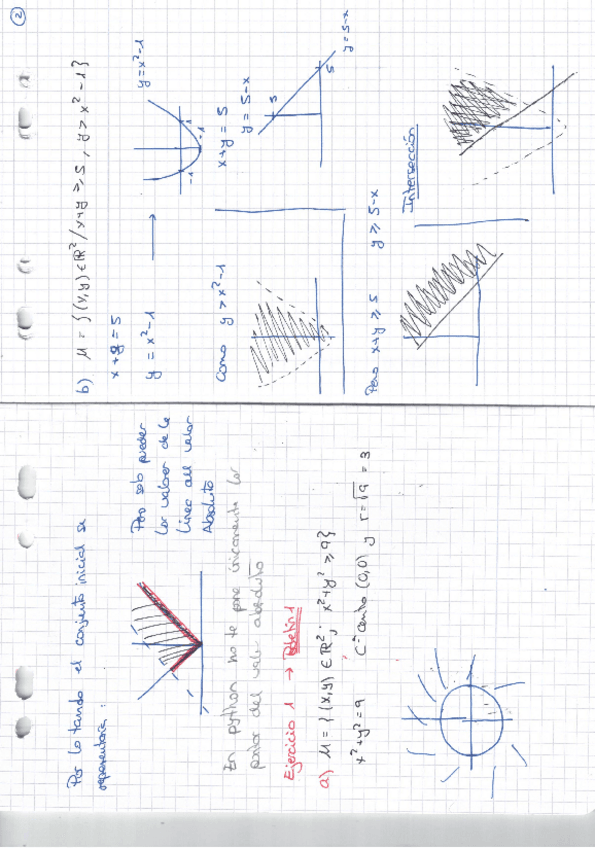 Por lo tanto el conjunto inicial se
representaría:
Pero solo pueden
los valores de la
línea del valor
Absoluto
En python no te pone únicamente los
del valor absoluto
Ejercicio 1 → Boletín 1
a) M = {(x,y) ∈ R²; x²+y² ≥ 9}
x²+y² = 9 Cª centro (0,0) y r = √9 = 3
②
b) M = {(x,y) ∈ R² / x+y ≥ 5, y > x²-1}
x+y = 5
y = x²-1 →
y = x²-1
-1
1
-1
Como y > x²-1
x+y = 5
y = 5-x
5
5
y = 5-x
Pero x+y ≥ 5 y ≥ 5-x
Intersección